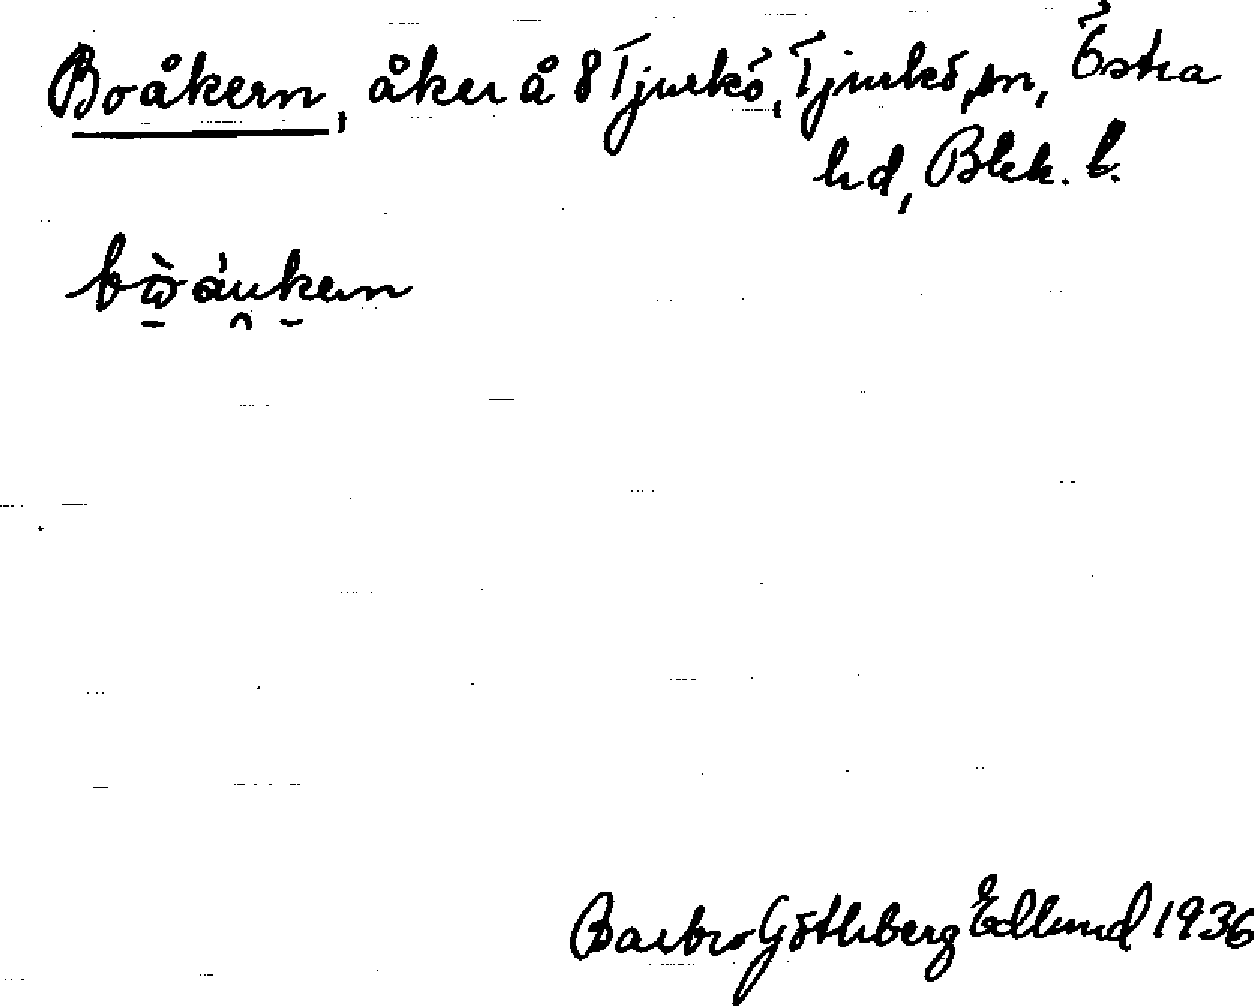 Boåkern, åker å 8 Tjurkö, Tjurkö sn, Östra
hd, Blek. l.
bὼ̠áu̯kern
Barbro Götlsberg Edlund 1936